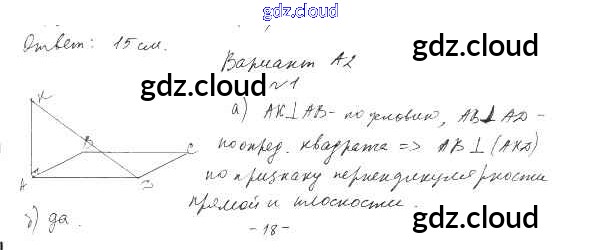 gdz.cloud
Ответ: 15 см.
gdz.cloud
Вариант А2
gdz.cloud
gdz.cloud
№1
а) АК⊥АВ - по условию, АВ⊥АD -
K
B
C
по опред. квадрата => АВ⊥(АКD)
A
D
по признаку перпендикулярности
прямой и плоскости.
gdz.cloud
gdz.cloud
б) да.
-18-